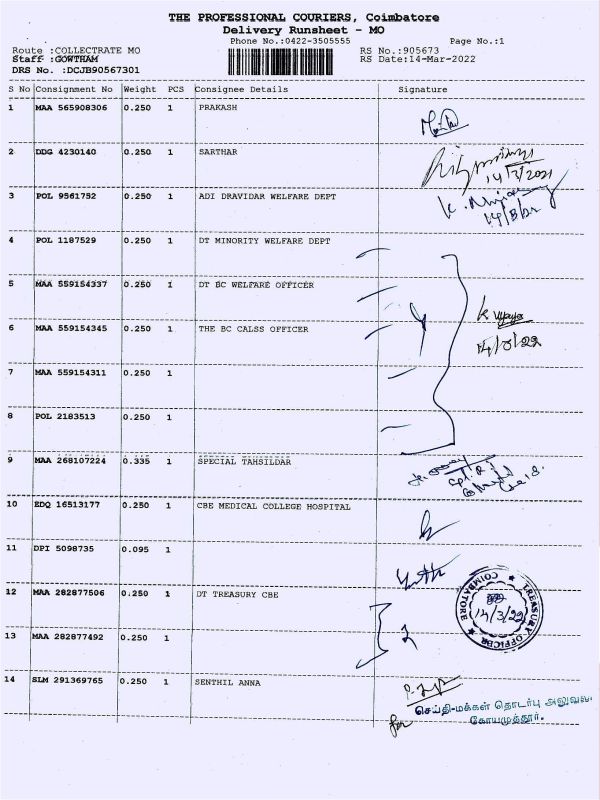 THE PROFESSIONAL COURIERS, Coimbatore
Delivery Runsheet - MO
Phone No.:0422-3505555 Page No.:1
Route :COLLECTRATE MO RS No.:905673
Staff :GOWTHAM RS Date:14-Mar-2022
DRS No. :DCJB90567301
S No Consignment No Weight PCS Consignee Details Signature
1 MAA 565908306 0.250 1 PRAKASH
2 DDG 4230140 0.250 1 SARTHAR
14/3/2021
3 POL 9561752 0.250 1 ADI DRAVIDAR WELFARE DEPT
4 POL 1187529 0.250 1 DT MINORITY WELFARE DEPT
5 MAA 559154337 0.250 1 DT BC WELFARE OFFICER
6 MAA 559154345 0.250 1 THE BC CALSS OFFICER
14/3/22
7 MAA 559154311 0.250 1
8 POL 2183513 0.250 1
9 MAA 268107224 0.335 1 SPECIAL TAHSILDAR
10 EDQ 16513177 0.250 1 CBE MEDICAL COLLEGE HOSPITAL
11 DPI 5098735 0.095 1
12 MAA 282877506 0.250 1 DT TREASURY CBE
TREASURY OFFICER COIMBATORE
14/3/22
13 MAA 282877492 0.250 1
14 SLM 291369765 0.250 1 SENTHIL ANNA
for
செய்தி-மக்கள் தொடர்பு அலுவலர்
கோயமுத்தூர்.